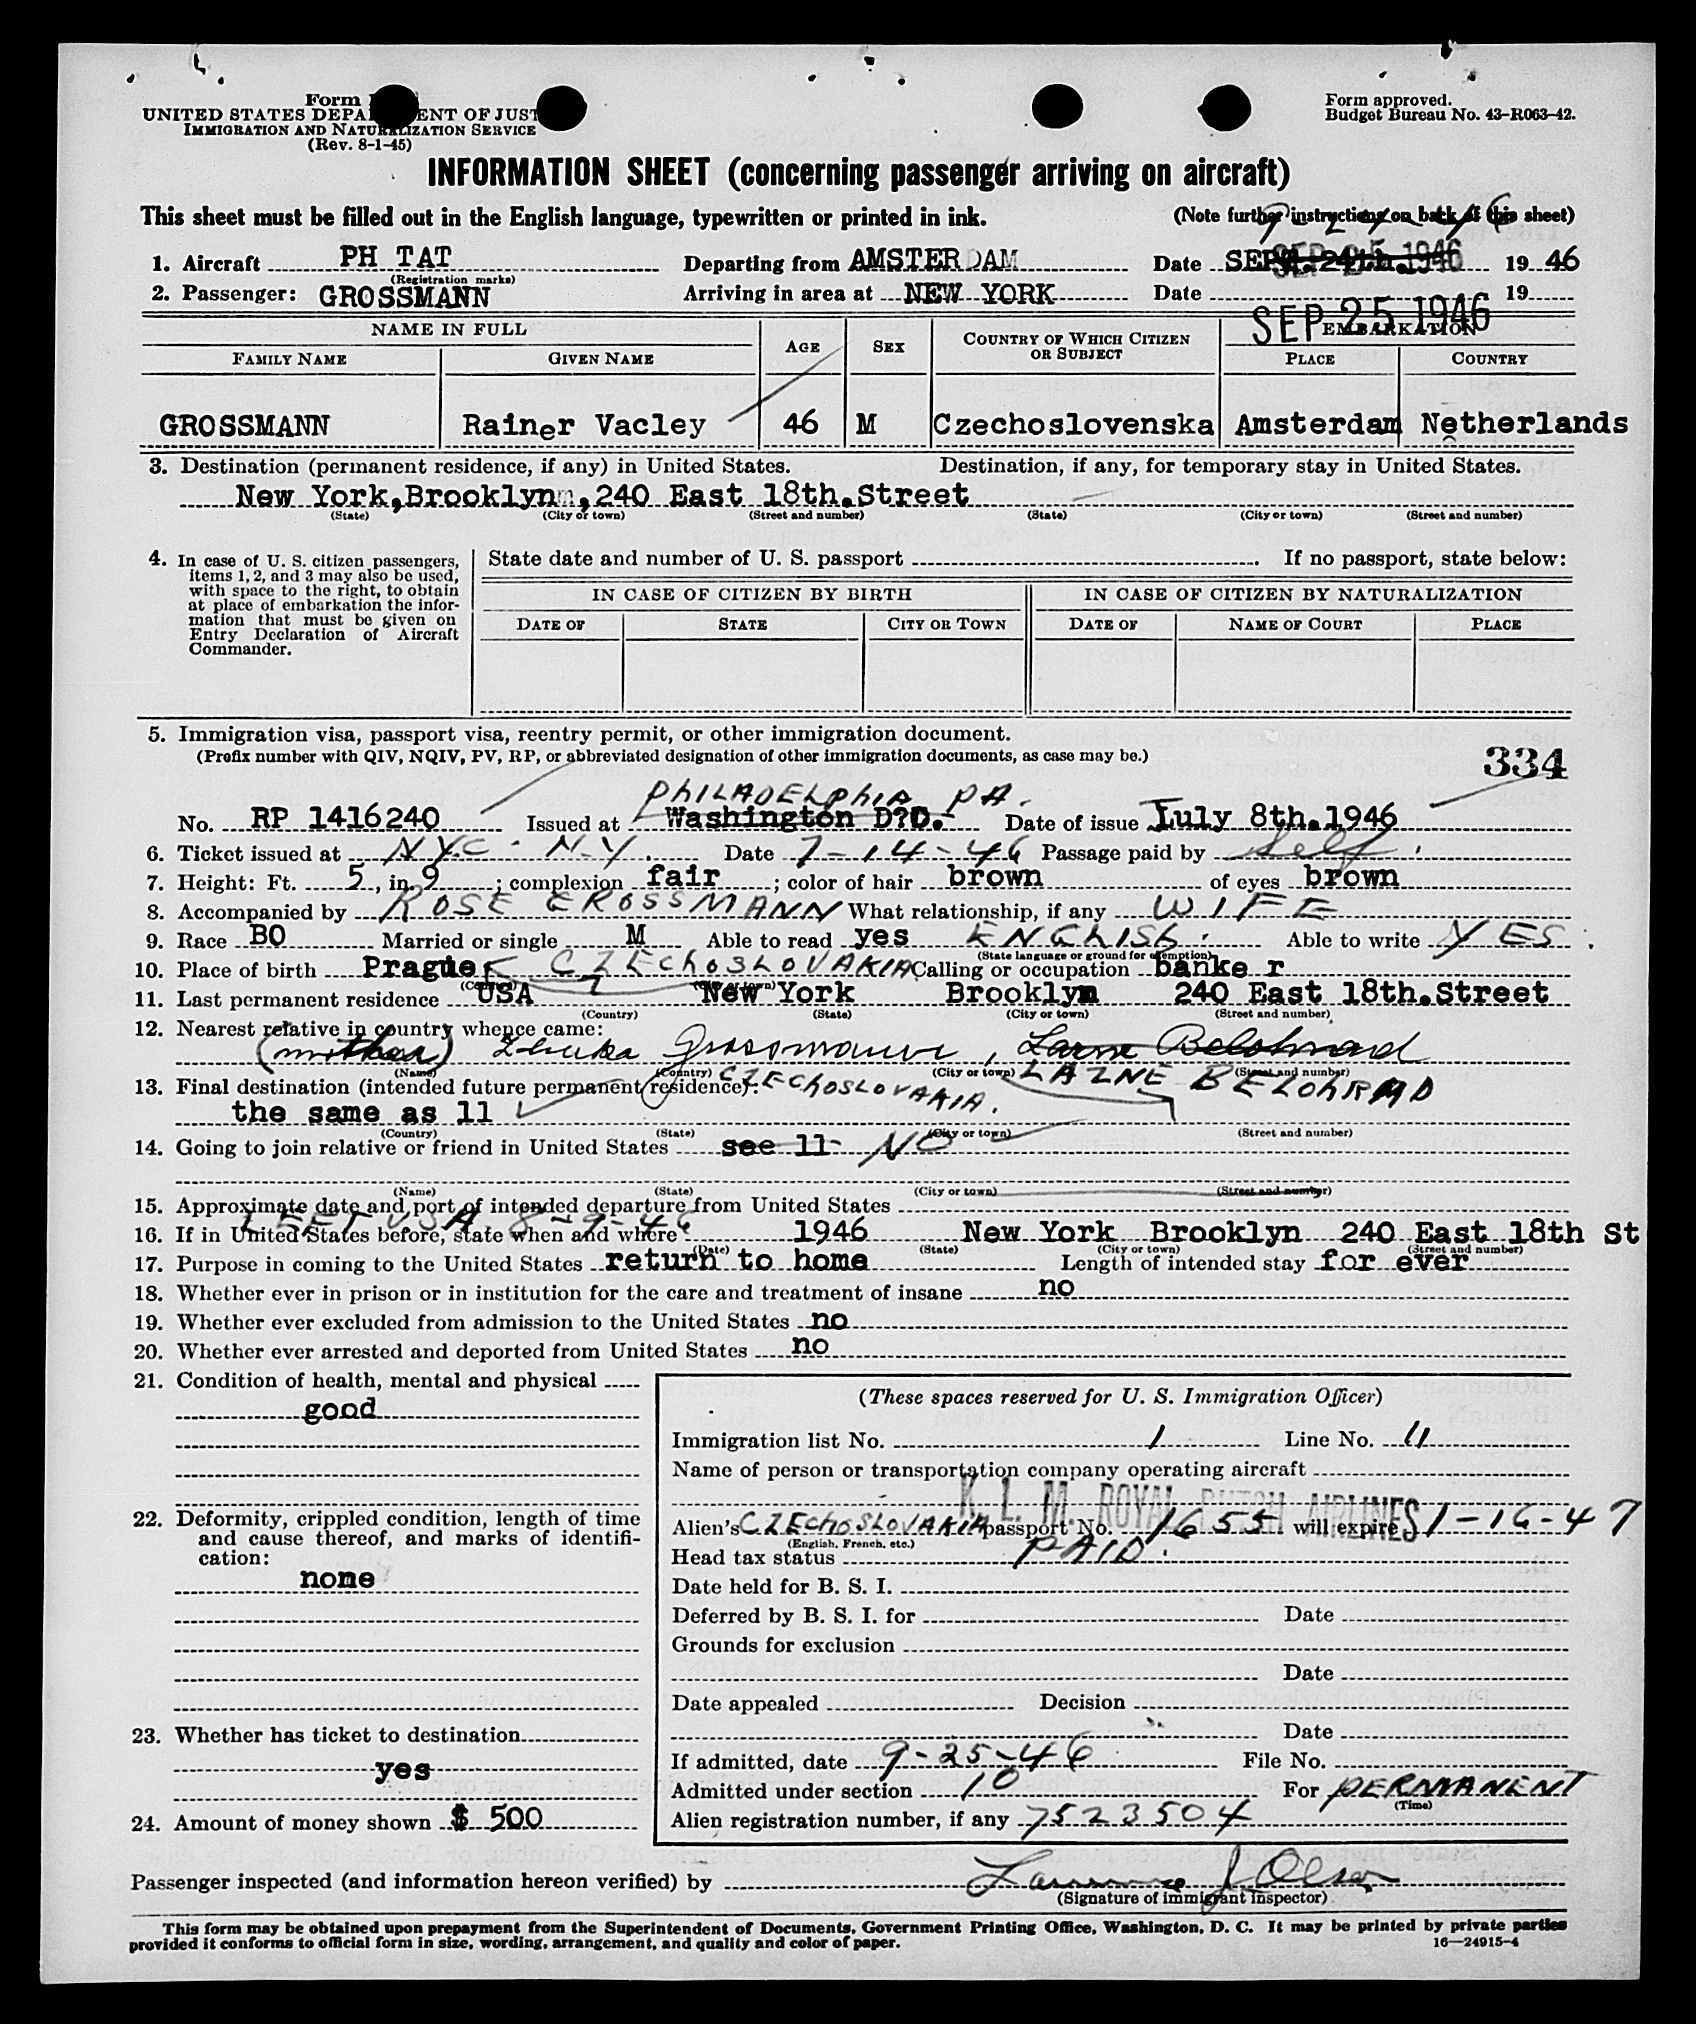 Form
UNITED STATES DEPA ENT OF JUST
IMMIGRATION AND NATURALIZATION SERVICE
(Rev. 8-1-45)
Form approved.
Budget Bureau No. 43-R063-42.
INFORMATION SHEET (concerning passenger arriving on aircraft)
This sheet must be filled out in the English language, typewritten or printed in ink. (Note further instructions on back of this sheet)
9-24-46
1. Aircraft PH TAT Departing from AMSTERDAM Date SEPT. 24th. 1946 SEP 25 1946 19 46
(Registration marks)
2. Passenger: GROSSMANN Arriving in area at NEW YORK Date 19
SEP 25 1946
NAME IN FULL AGE SEX COUNTRY OF WHICH CITIZEN OR SUBJECT EMBARKATION
FAMILY NAME GIVEN NAME PLACE COUNTRY
GROSSMANN Rainer Vacley 46 M Czechoslovenska Amsterdam Netherlands
3. Destination (permanent residence, if any) in United States. Destination, if any, for temporary stay in United States.
New York,Brooklynn,240 East 18th.Street
(State) (City or town) (Street and number) (State) (City or town) (Street and number)
4. In case of U. S. citizen passengers, items 1, 2, and 3 may also be used, with space to the right, to obtain at place of embarkation the information that must be given on Entry Declaration of Aircraft Commander.
State date and number of U. S. passport . If no passport, state below:
IN CASE OF CITIZEN BY BIRTH IN CASE OF CITIZEN BY NATURALIZATION
DATE OF STATE CITY OR TOWN DATE OF NAME OF COURT PLACE
5. Immigration visa, passport visa, reentry permit, or other immigration document.
(Prefix number with QIV, NQIV, PV, RP, or abbreviated designation of other immigration documents, as case may be.)
334
PHILADELPHIA PA.
No. RP 1416240 Issued at Washington D?D. Date of issue Iuly 8th.1946
6. Ticket issued at N.Y.C. N.Y. Date 7-14-46 Passage paid by Self
7. Height: Ft. 5, in. 9; complexion fair; color of hair brown of eyes brown
8. Accompanied by ROSE GROSSMANN What relationship, if any WIFE
9. Race BO Married or single M Able to read yes ENGLISH. Able to write YES.
(State language or ground for exemption)
10. Place of birth Prague CZECHOSLOVAKIA Calling or occupation banke r
(Country) (City or town)
11. Last permanent residence USA New York Brooklyn 240 East 18th.Street
(Country) (State) (City or town) (Street and number)
12. Nearest relative in country whence came:
(mother) Grossmann, Lazne Belohrad
(Name) (Country) (City or town) (Street and number)
CZECHOSLOVAKIA. LAZNE BELOHRAD
13. Final destination (intended future permanent residence):
the same as 11
(Country) (State) (City or town) (Street and number)
14. Going to join relative or friend in United States see 11- NO
(Name) (State) (City or town) (Street and number)
15. Approximate date and port of intended departure from United States
LEFT USA 8-9-46
16. If in United States before, state when and where 1946 New York Brooklyn 240 East 18th St
(Date) (State) (City or town) (Street and number)
17. Purpose in coming to the United States return to home Length of intended stay for ever
18. Whether ever in prison or in institution for the care and treatment of insane no
19. Whether ever excluded from admission to the United States no
20. Whether ever arrested and deported from United States no
21. Condition of health, mental and physical
good
22. Deformity, crippled condition, length of time and cause thereof, and marks of identification:
none
23. Whether has ticket to destination
yes
24. Amount of money shown $ 500
(These spaces reserved for U. S. Immigration Officer)
Immigration list No. 1 Line No. 11
Name of person or transportation company operating aircraft
K. L. M. ROYAL DUTCH AIRLINES
Alien's CZECHOSLOVAKIA passport No. 1655 will expire 1-16-47
(English, French, etc.)
Head tax status PAID.
Date held for B. S. I.
Deferred by B. S. I. for Date
Grounds for exclusion
Date
Date appealed Decision
Date
If admitted, date 9-25-46 File No.
Admitted under section 10 For PERMANENT
(Time)
Alien registration number, if any 7523504
Passenger inspected (and information hereon verified) by Lawrence J Olsen
(Signature of immigrant inspector)
This form may be obtained upon prepayment from the Superintendent of Documents, Government Printing Office, Washington, D. C. It may be printed by private parties
provided it conforms to official form in size, wording, arrangement, and quality and color of paper. 16—24915-4